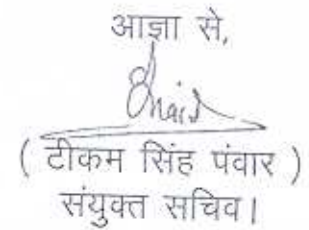 आज्ञा से,
( टीकम सिंह पंवार )
संयुक्त सचिव।